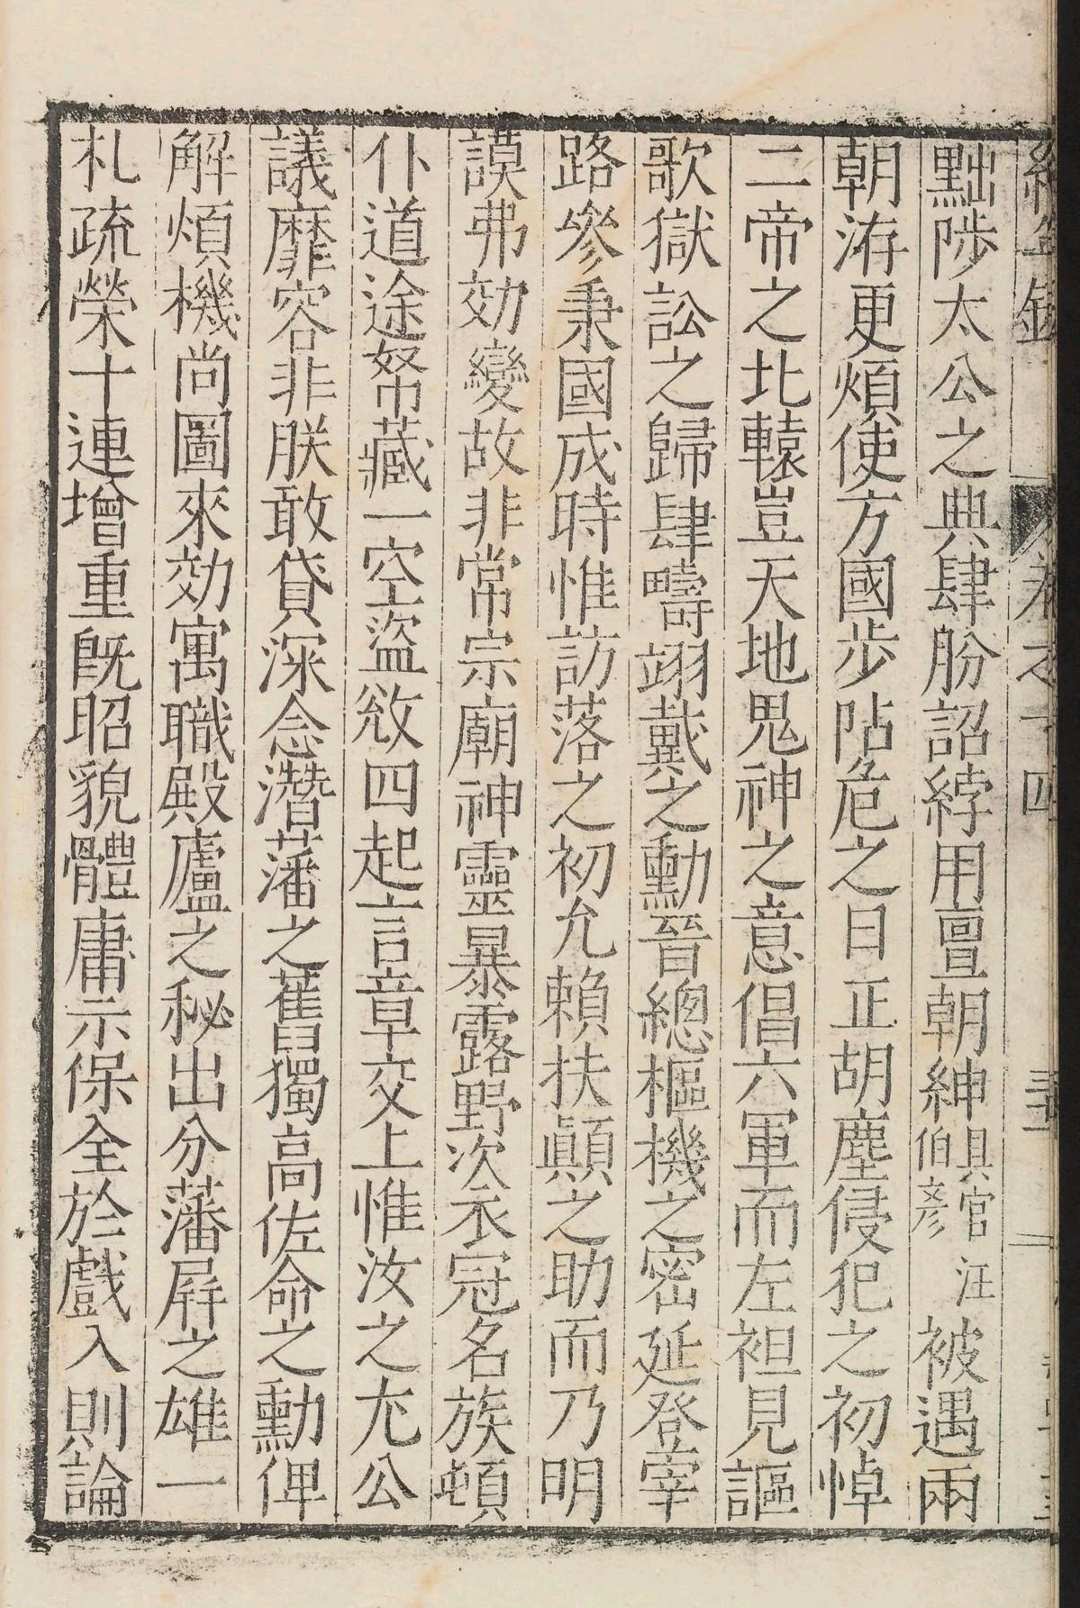 黜陟太公之典肆肦詔綍用亶朝紳具官汪伯彦被遇兩
朝洊更煩使方國步阽危之日正胡塵侵犯之初悼
二帝之北轅豈天地鬼神之意倡六軍而左袒見謳
歌獄訟之歸肆疇翊戴之勳晉總樞機之密延登宰
路參秉國成時惟訪落之初允賴扶顚之助而乃明
謨弗効變故非常宗廟神靈暴露野次衣冠名族頓
仆道途帑藏一空盜敓四起言章交上惟汝之尤公
議靡容非朕敢貸深念潛藩之舊獨高佐命之勳俾
解煩機尚圖來効寓職殿廬之秘出分藩屛之雄一
札疏榮十連增重旣昭貌體庸示保全於戲入則論